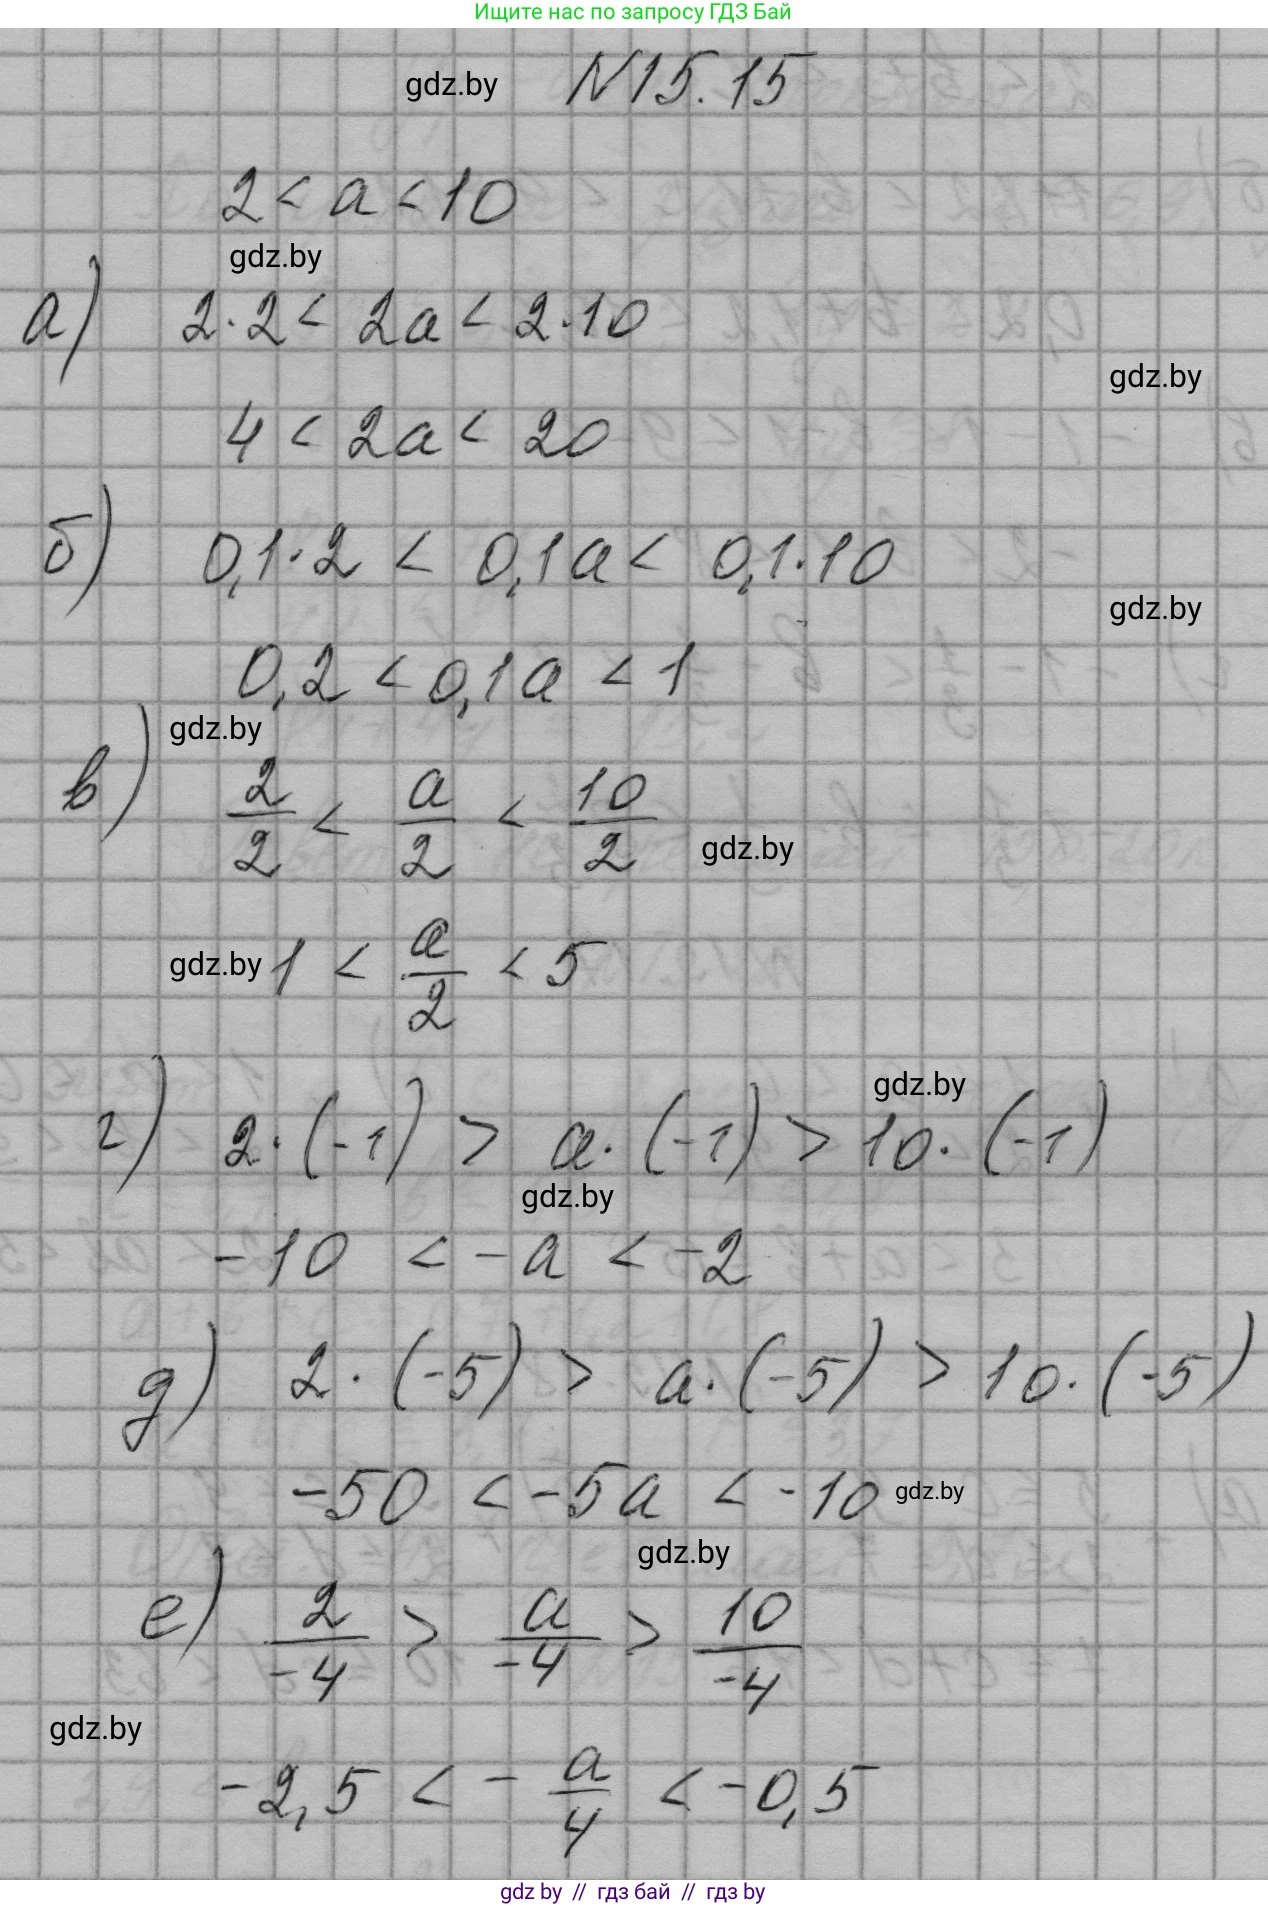 Ищите нас по запросу ГДЗ Бай
gdz.by N15.15
2 < a < 10
gdz.by
а) 2·2 < 2a < 2·10
gdz.by
4 < 2a < 20
б) 0,1·2 < 0,1a < 0,1·10
gdz.by
0,2 < 0,1a < 1
gdz.by
в) 2/2 < a/2 < 10/2
gdz.by
gdz.by 1 < a/2 < 5
gdz.by
г) 2·(-1) > a·(-1) > 10·(-1)
gdz.by
-10 < -a < -2
д) 2·(-5) > a·(-5) > 10·(-5)
-50 < -5a < -10 gdz.by
gdz.by
е) 2/-4 > a/-4 > 10/-4
gdz.by
-2,5 < -a/4 < -0,5
gdz by // гдз бай // гдз by